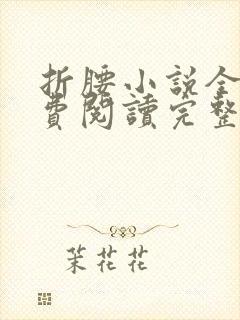 折腰小説全
費閱讀完整
茉花花